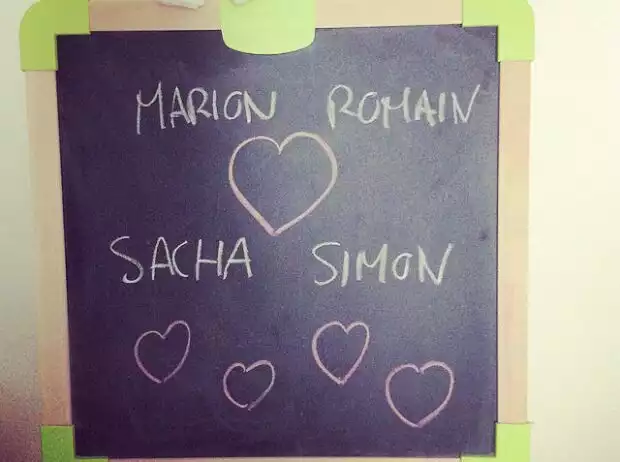 MARION ROMAIN
SACHA SIMON